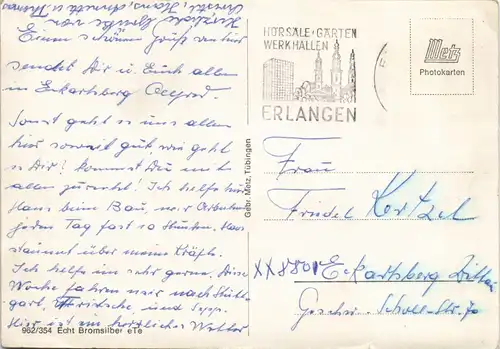 Einen schönen Gruß von hier
sendet Dir u. Euch allen
in Eckartsberg
Sonst geht es uns allen
hier soweit gut, wie geht
es Dir? kommst Du mit
allen zurecht! Ich helfe hier
Hans beim Bau, wir
jeden Tag fast 10 Stunden, Hans
staunt über meine Kräfte.
Ich helfe ihm sehr gerne. Diese
Woche fahren wir nach Stutt-
gart, Fritzsche, und Sepp.
Hier ist ein herrliches Wetter
962/354 Echt Bromsilber eTe
Herzliche Grüße von
Hans, u. Thomas
Gebr. Metz, Tübingen
HÖRSÄLE · GÄRTEN
WERKHALLEN
ERLANGEN
Metz
Photokarten
Frau
Friedel Kertzel
XX8801 Eckartsberg
Geschw. Scholl-Str.